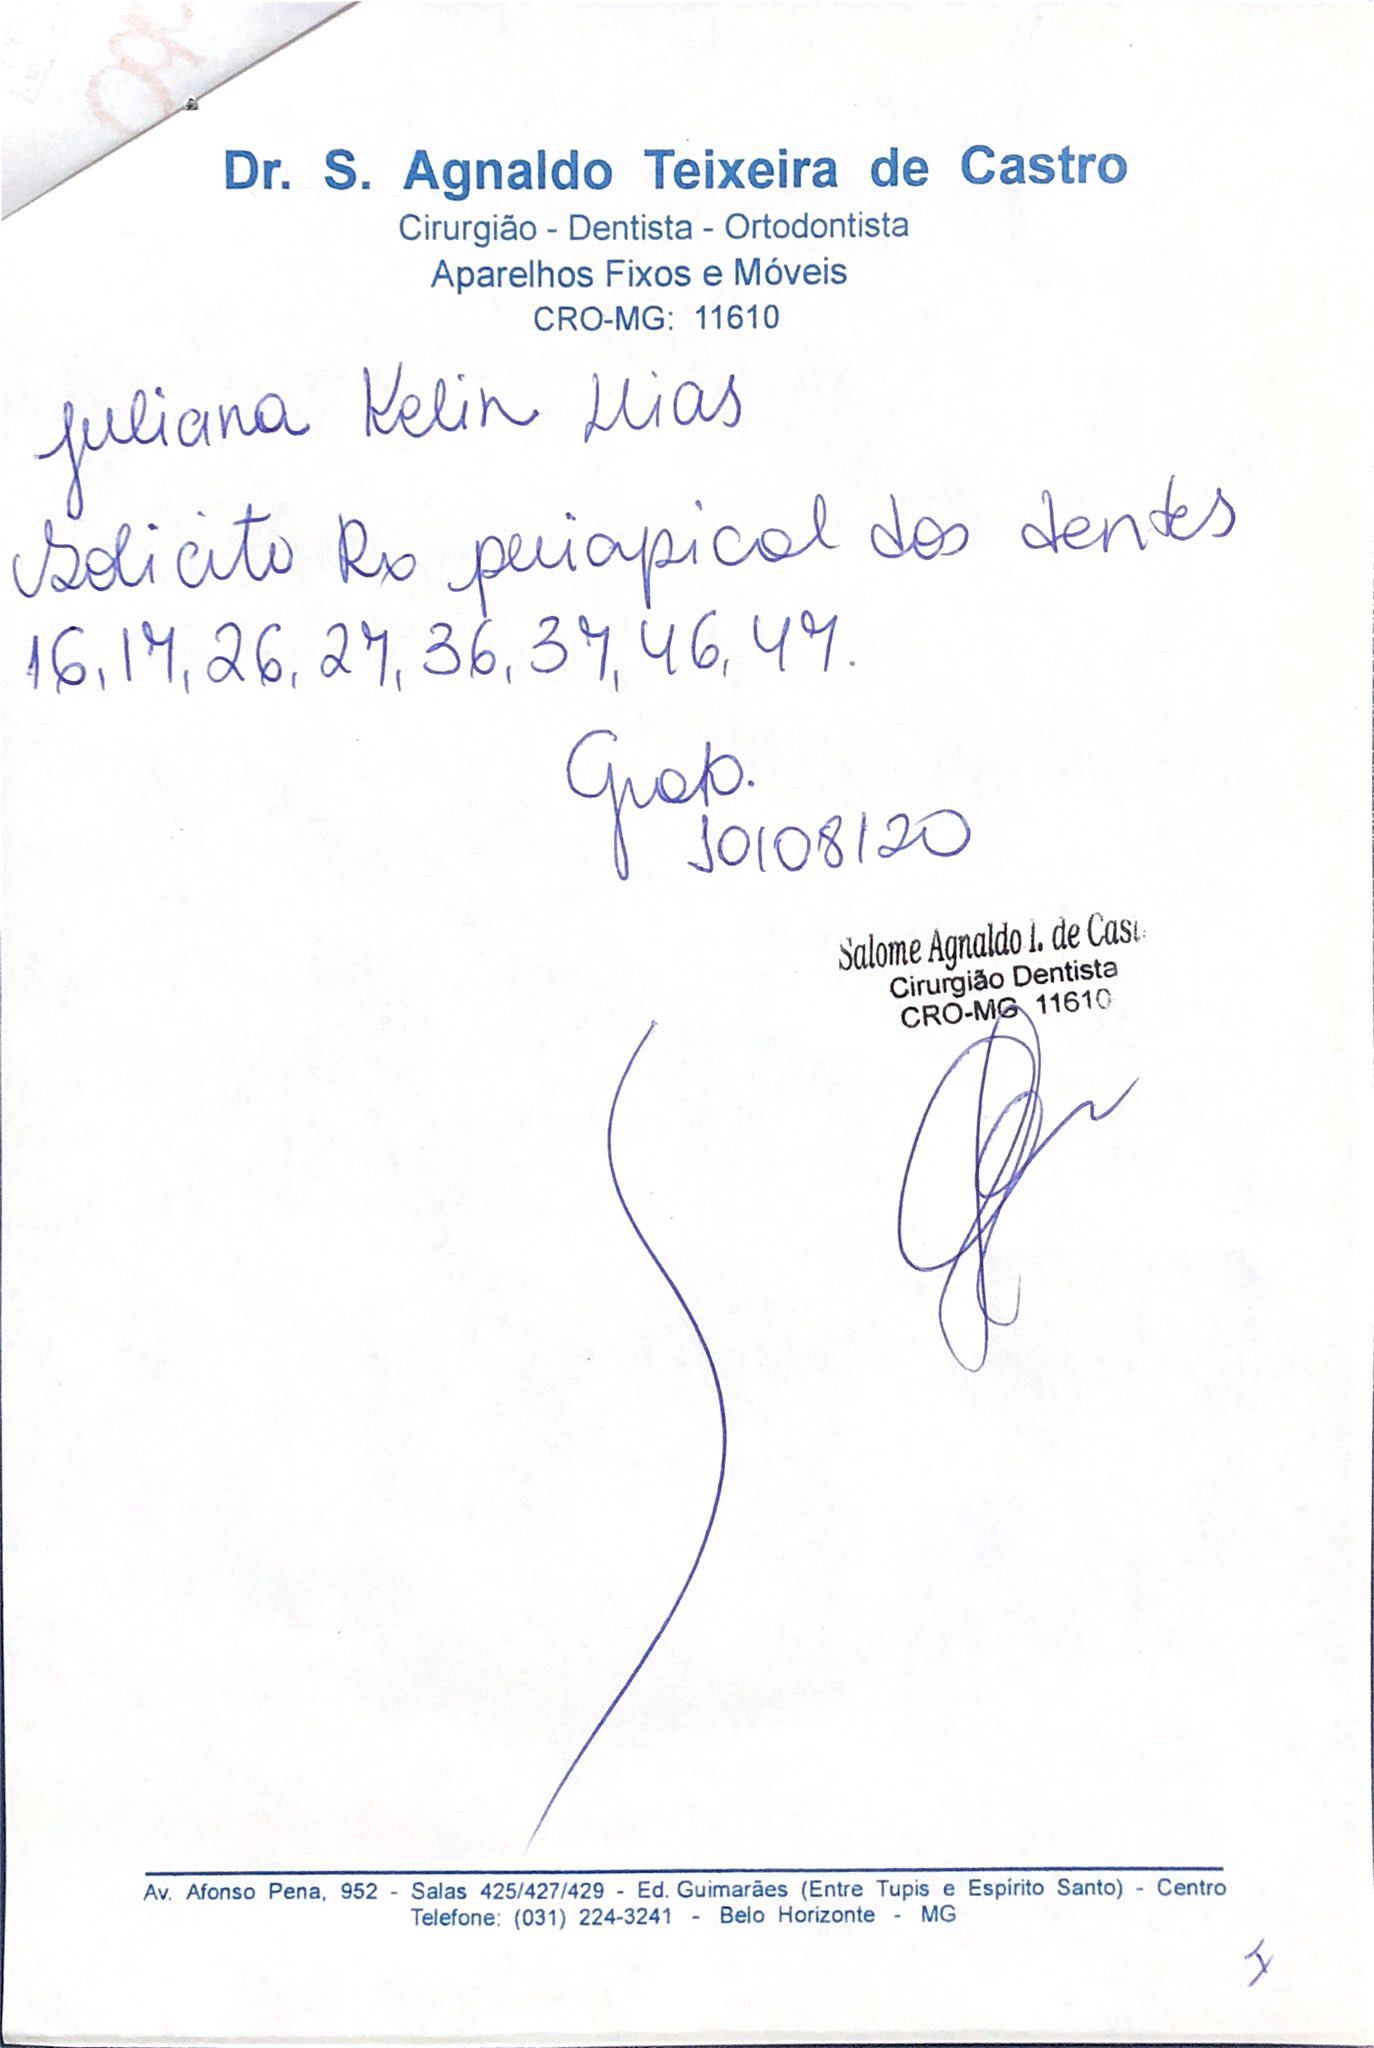 Dr. S. Agnaldo Teixeira de Castro
Cirurgião - Dentista - Ortodontista
Aparelhos Fixos e Móveis
CRO-MG: 11610
Juliana Kelin Dias
Solicito Rx periapical dos dentes
16, 17, 26, 27, 36, 37, 46, 47.
10/08/20
Salome Agnaldo T. de Cast
Cirurgião Dentista
CRO-MG 11610
Av. Afonso Pena, 952 - Salas 425/427/429 - Ed. Guimarães (Entre Tupis e Espírito Santo) - Centro
Telefone: (031) 224-3241 - Belo Horizonte - MG